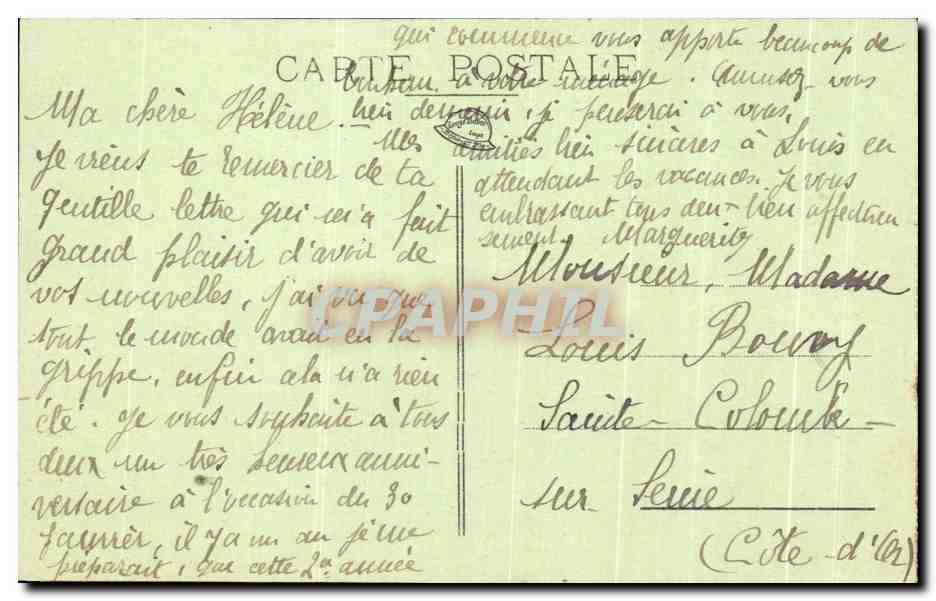 CARTE POSTALE
Ma chère Hélène.
Je viens te remercier de ta
gentille lettre qui m'a fait
grand plaisir d'avoir de
vos nouvelles, j'ai vu que
tout le monde avait eu la
grippe, enfin cela n'a rien
été. Je vous souhaite à tous
deux un très heureux anni-
versaire à l'occasion du 30
Janvier, il y a un an je me
préparait, que cette 2e année
qui commence vous apporte beaucoup de
bonheur à votre ménage. Amusez vous
bien demain, je penserai à vous.
Mes amitiés bien sincères à Louis en
attendant les vacances. Je vous
embrassant tous deux bien affectueu
sement. Marguerite
Monsieur, Madame
Louis
Sainte-Colombe-
sur Seine
(Côte-d'Or)
CPAPHIL